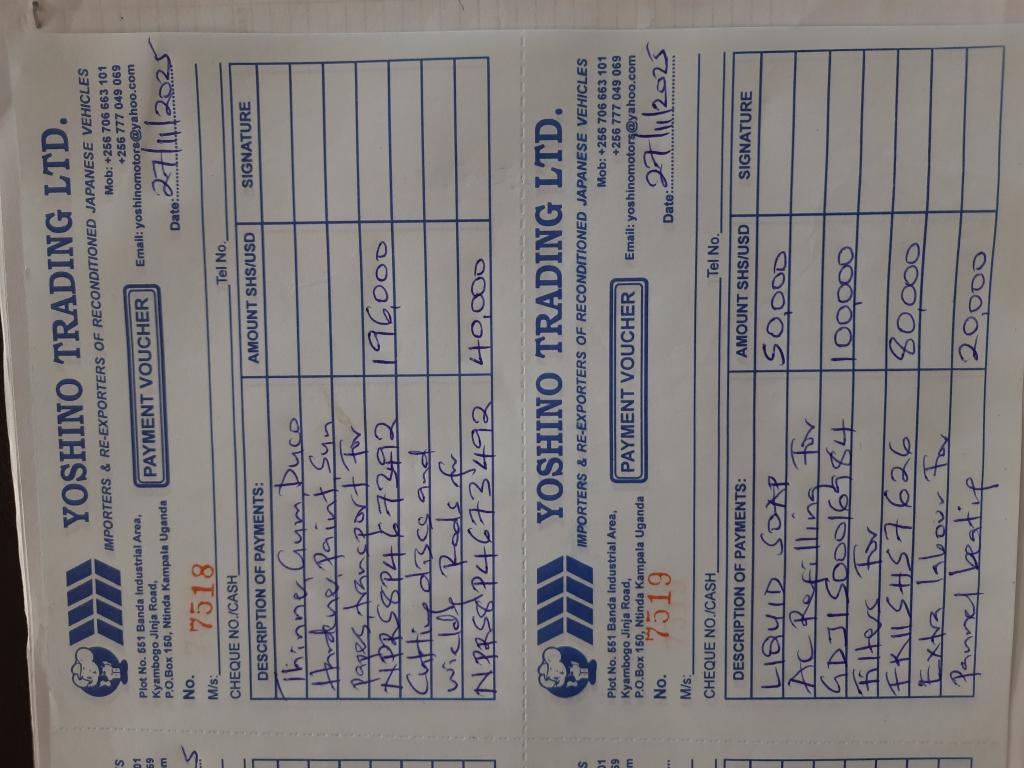 YOSHINO TRADING LTD.
IMPORTERS & RE-EXPORTERS OF RECONDITIONED JAPANESE VEHICLES
Plot No. 551 Banda Industrial Area,
Kyambogo Jinja Road,
P.O.Box 150, Ntinda Kampala Uganda
PAYMENT VOUCHER
Mob: +256 706 663 101
+256 777 049 069
Email: yoshinomotors@yahoo.com
No. 7518
Date: 27/11/2025
M/s:
CHEQUE NO./CASH Tel No.
DESCRIPTION OF PAYMENTS: AMOUNT SHS/USD SIGNATURE
Thinner, Gum, Duco
Hardener, Paint, Syn
Papers, transport For
NPR58P4673492 196,000
Cutting discs and
wielding Rods for
NPR58P4673492 40,000
YOSHINO TRADING LTD.
IMPORTERS & RE-EXPORTERS OF RECONDITIONED JAPANESE VEHICLES
Plot No. 551 Banda Industrial Area,
Kyambogo Jinja Road,
P.O.Box 150, Ntinda Kampala Uganda
PAYMENT VOUCHER
Mob: +256 706 663 101
+256 777 049 069
Email: yoshinomotors@yahoo.com
No. 7519
Date: 27/11/2025
M/s:
CHEQUE NO./CASH Tel No.
DESCRIPTION OF PAYMENTS: AMOUNT SHS/USD SIGNATURE
LIQUID SOAP 50,000
AC Refilling For
GDJ1500016984 100,000
Filters For
FK115H57626 80,000
Extra labour For
Pannel beatig 20,000